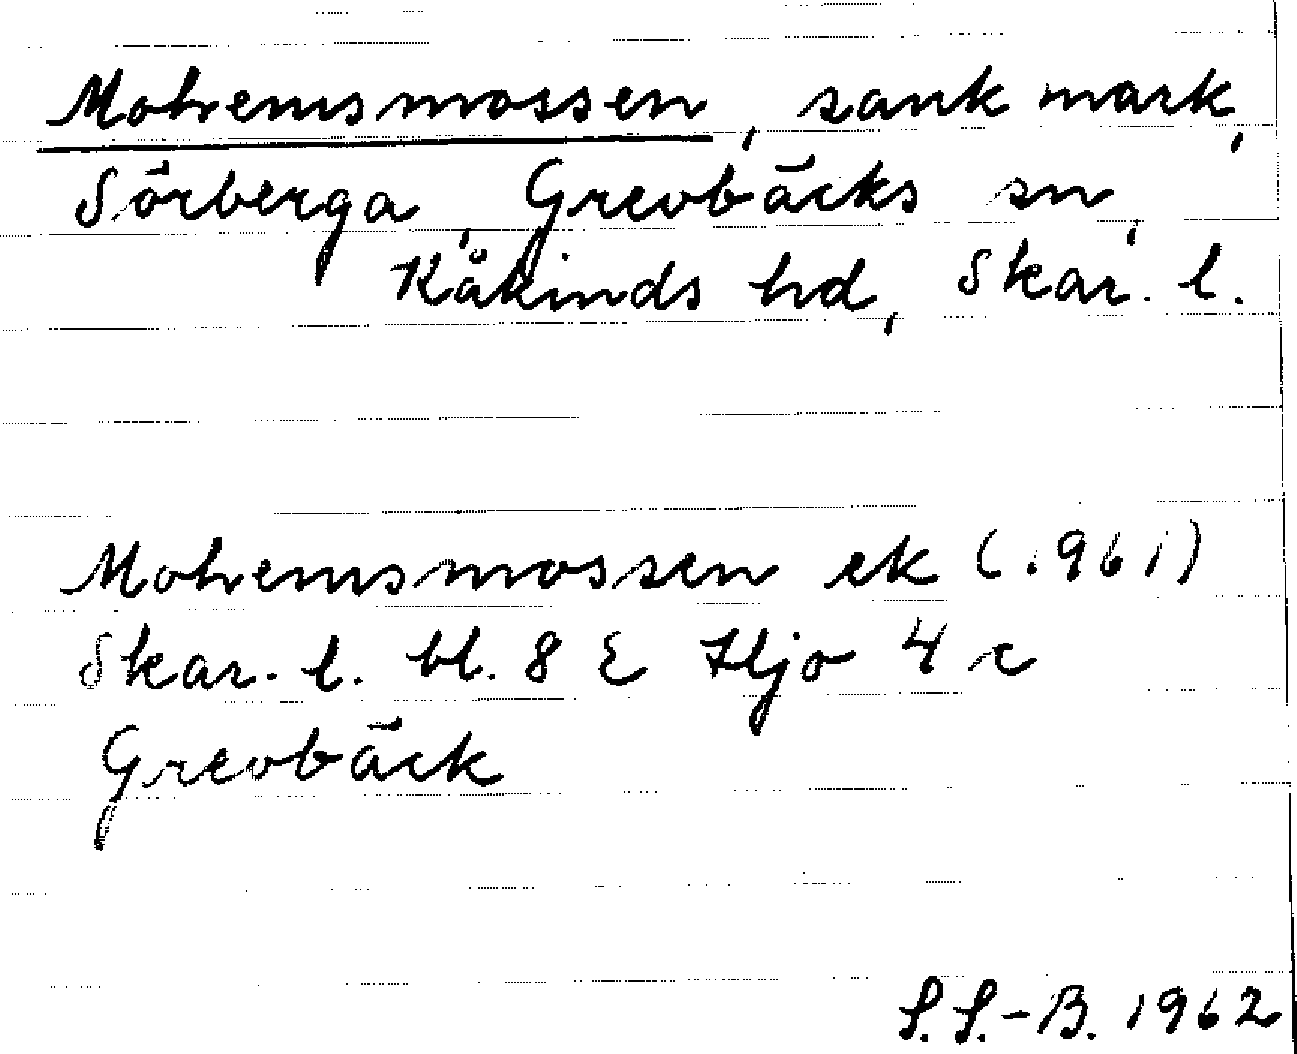 Mohemsmossen, sank mark,
Sörberga, Grevbäcks sn,
Kåkinds hd, Skar. l.
Mohemsmossen ek (1961)
Skar. l. bl. 8 E Hjo 4 c
Grevbäck
S.S.-B. 1962